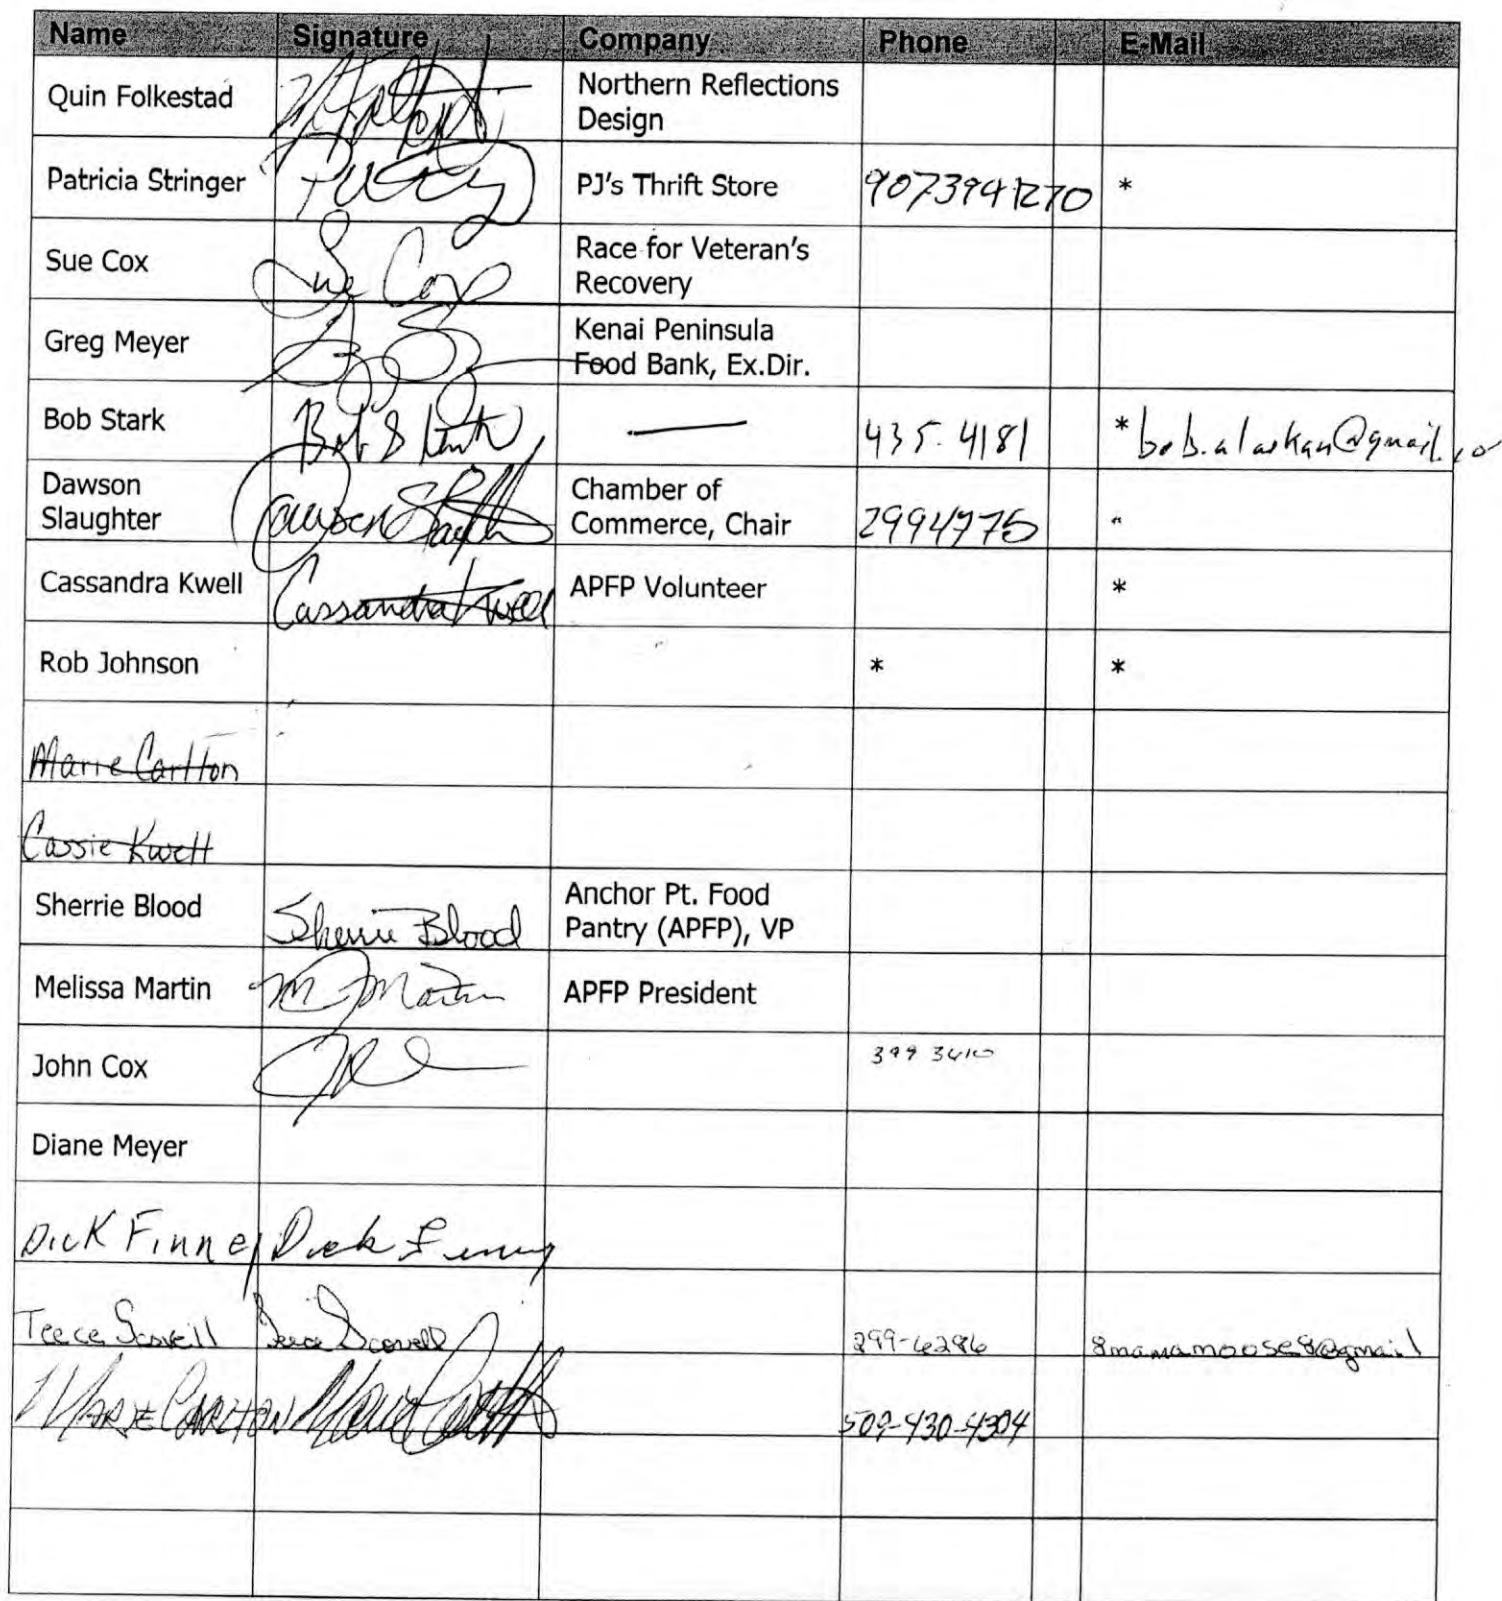 Name Signature Company Phone E-Mail
Quin Folkestad Northern Reflections
Design
Patricia Stringer PJ's Thrift Store *
Sue Cox Sue Cox Race for Veteran's
Recovery
Greg Meyer Kenai Peninsula
Food Bank, Ex.Dir.
Bob Stark — 435-4181 * bob.alaskan@gmail.co
Dawson
Slaughter Chamber of
Commerce, Chair 2994775 "
Cassandra Kwell Cassandra Kwell APFP Volunteer *
Rob Johnson * *
Marie Carlton
Cassie Kwell
Sherrie Blood Sherrie Blood Anchor Pt. Food
Pantry (APFP), VP
Melissa Martin M Martin APFP President
John Cox
Diane Meyer
Dick Finney Dick Finney
Teece Scovell Teece Scovell 299-6286 8mamamoose8@gmail
MARIE CARLTON Marie Carlton 509-430-4304